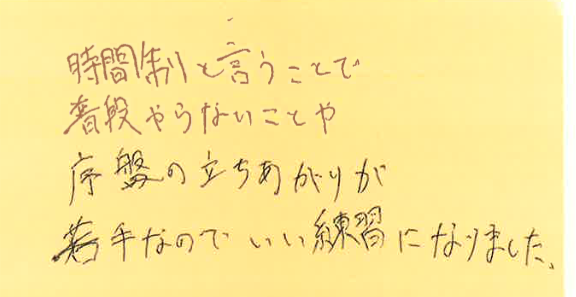 時間制と言うことで
普段やらないことや
序盤の立ちあがりが
苦手なのでいい練習になりました。